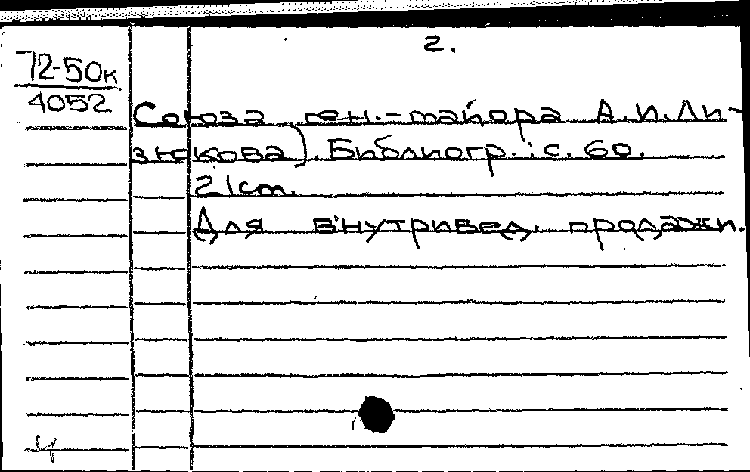 2.
72-50к
4052
Союза ген.-майора А.И.Ли-
зюкова). Библиогр.: с. 60.
21cm.
Для внутривед. продажи.